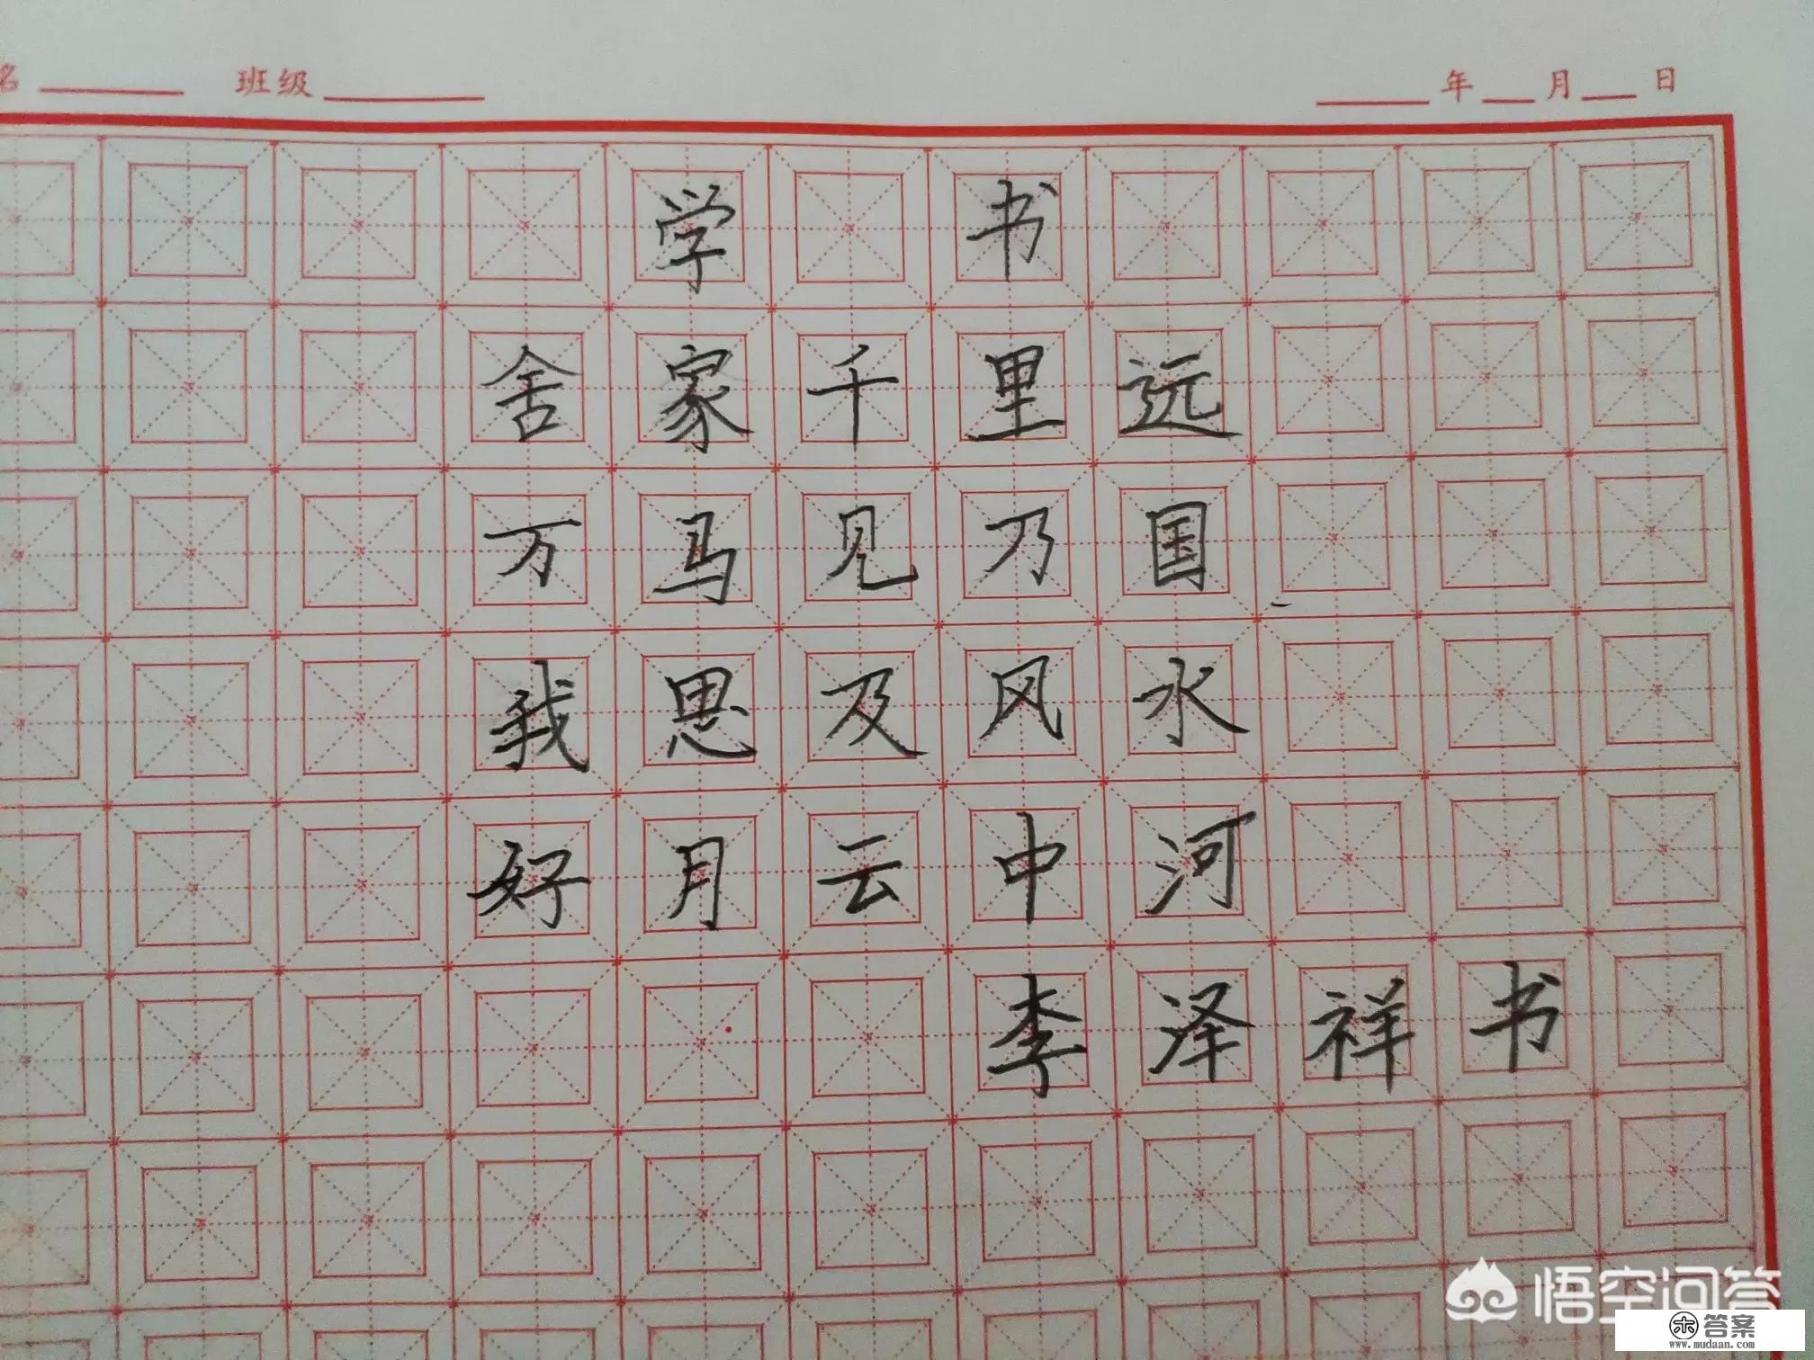 名 班级 年 月 日
学 书
舍家千里远
万马见乃国
我思及风水
好月云中河
李泽祥书
悟空问答
答案
www.mudaan.com